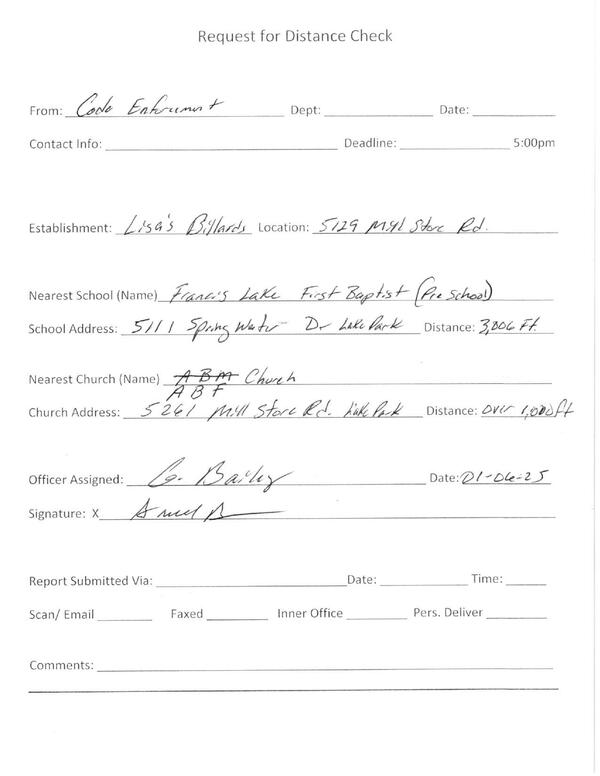 Request for Distance Check
From: Code Enforcement Dept: Date:
Contact Info: Deadline: 5:00pm
Establishment: Lisa's Billards Location: 5129 Mill Store Rd.
Nearest School (Name) Francis Lake First Baptist (Pre School)
School Address: 5111 Spring Water Dr Lake Park Distance: 3,006 Ft.
Nearest Church (Name) ABM Church
ABF
Church Address: 5261 Mill Store Rd. Lake Park Distance: over 1,000 ft
Officer Assigned: G. Bailey Date: 01-06-25
Signature: X
Report Submitted Via: Date: Time:
Scan/ Email Faxed Inner Office Pers. Deliver
Comments: